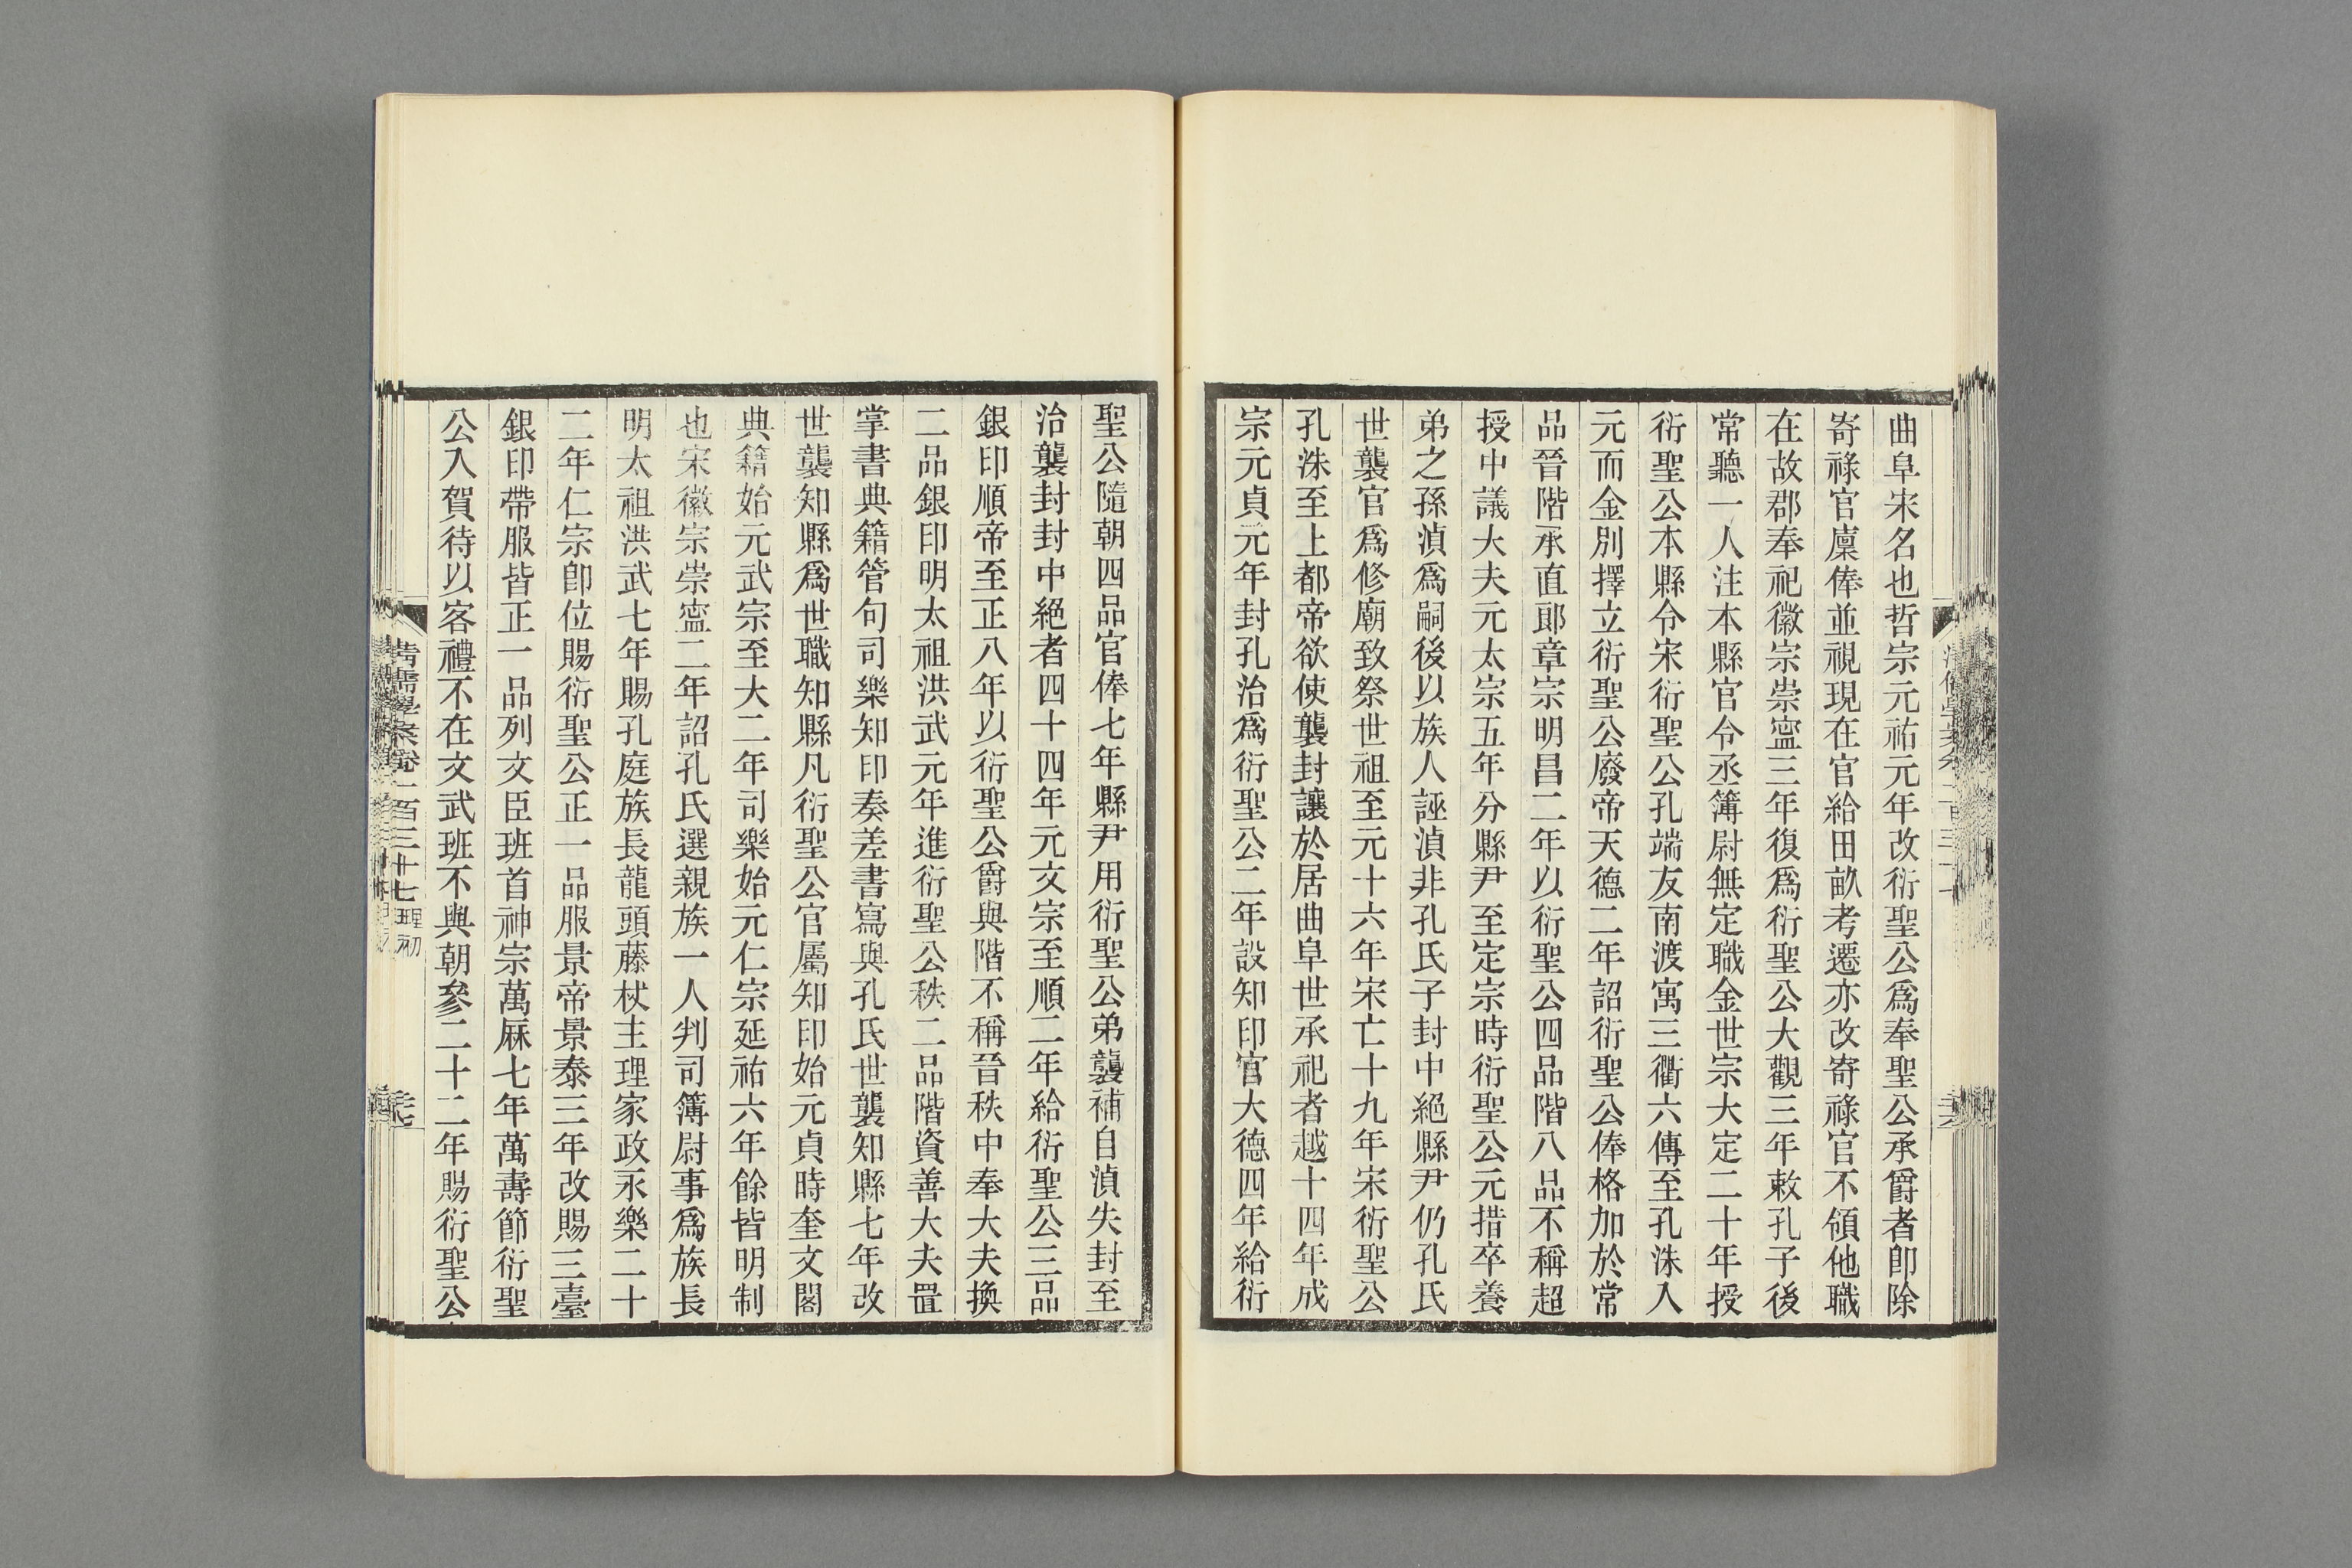 曲阜宋名也哲宗元祐元年改衍聖公爲奉聖公承爵者卽除
寄祿官廩俸並視現在官給田畝考遷亦改寄祿官不領他職
在故郡奉祀徽宗崇寍三年復爲衍聖公大觀三年敕孔子後
常聽一人注本縣官令丞簿尉無定職金世宗大定二十年授
衍聖公本縣令宋衍聖公孔端友南渡寓三衢六傳至孔洙入
元而金別擇立衍聖公廢帝天德二年詔衍聖公俸格加於常
品晉階承直郎章宗明昌二年以衍聖公四品階八品不稱超
授中議大夫元太宗五年分縣尹至定宗時衍聖公元措卒養
弟之孫湞爲嗣後以族人誣湞非孔氏子封中絕縣尹仍孔氏
世襲官爲修廟致祭世祖至元十六年宋亡十九年宋衍聖公
孔洙至上都帝欲使襲封讓於居曲阜世承祀者越十四年成
宗元貞元年封孔治爲衍聖公二年設知印官大德四年給衍
聖公隨朝四品官俸七年縣尹用衍聖公弟襲補自湞失封至
治襲封封中絕者四十四年元文宗至順二年給衍聖公三品
銀印順帝至正八年以衍聖公爵與階不稱晉秩中奉大夫換
二品銀印明太祖洪武元年進衍聖公秩二品階資善大夫置
掌書典籍管句司樂知印奏差書寫與孔氏世襲知縣七年改
世襲知縣爲世職知縣凡衍聖公官屬知印始元貞時奎文閣
典籍始元武宗至大二年司樂始元仁宗延祐六年餘皆明制
也宋徽宗崇寍二年詔孔氏選親族一人判司簿尉事爲族長
明太祖洪武七年賜孔庭族長龍頭藤杖主理家政永樂二十
二年仁宗卽位賜衍聖公正一品服景帝景泰三年改賜三臺
銀印帶服皆正一品列文臣班首神宗萬厤七年萬壽節衍聖
公入賀待以客禮不在文武班不與朝參二十二年賜衍聖公
清儒學案卷一百三十七 理初